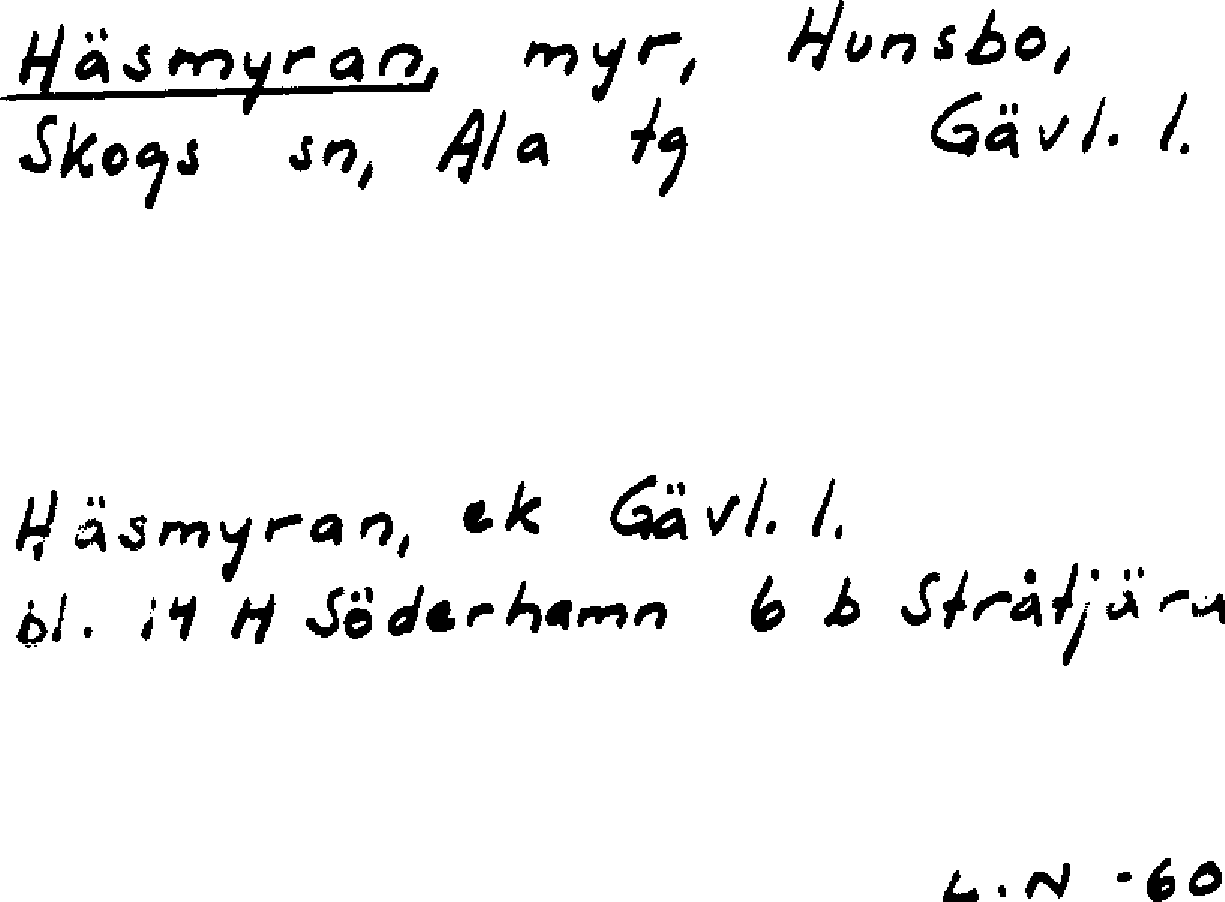 Häsmyran, myr, Hunsbo,
Skogs sn, Ala tg Gävl. l.
Häsmyran, ek Gävl. l.
bl. 14 H Söderhamn 6 b Stråtjärn
L.N -60